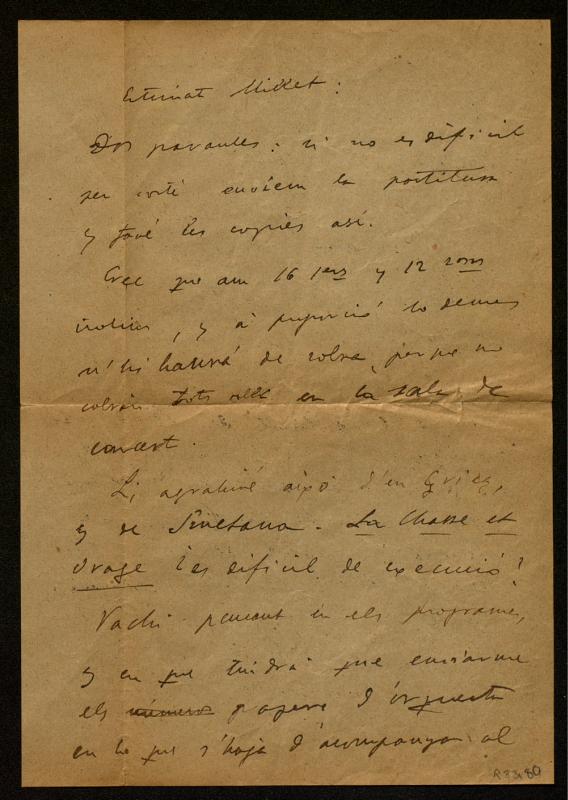 Estimat Millet:
Dos paraules: si no es dificil
per corté enviem la partitura
y faré les copies así.
Crec que am 16 jers y 12 sons
violins, y á proporció lo demes
n'hi haurá de sobra, perque no
cobrán tots ells en la sala de
concert.
Li agrahiré aixó d'en Grieg,
y de Smetana. La Chasse et
Orage ¿es dificil de execució?
Vachi pensant en els programes,
y en que tindrá que enviarme
els numeros papers d'orquesta
en lo que s'haja d'acompanyar al
R 33480